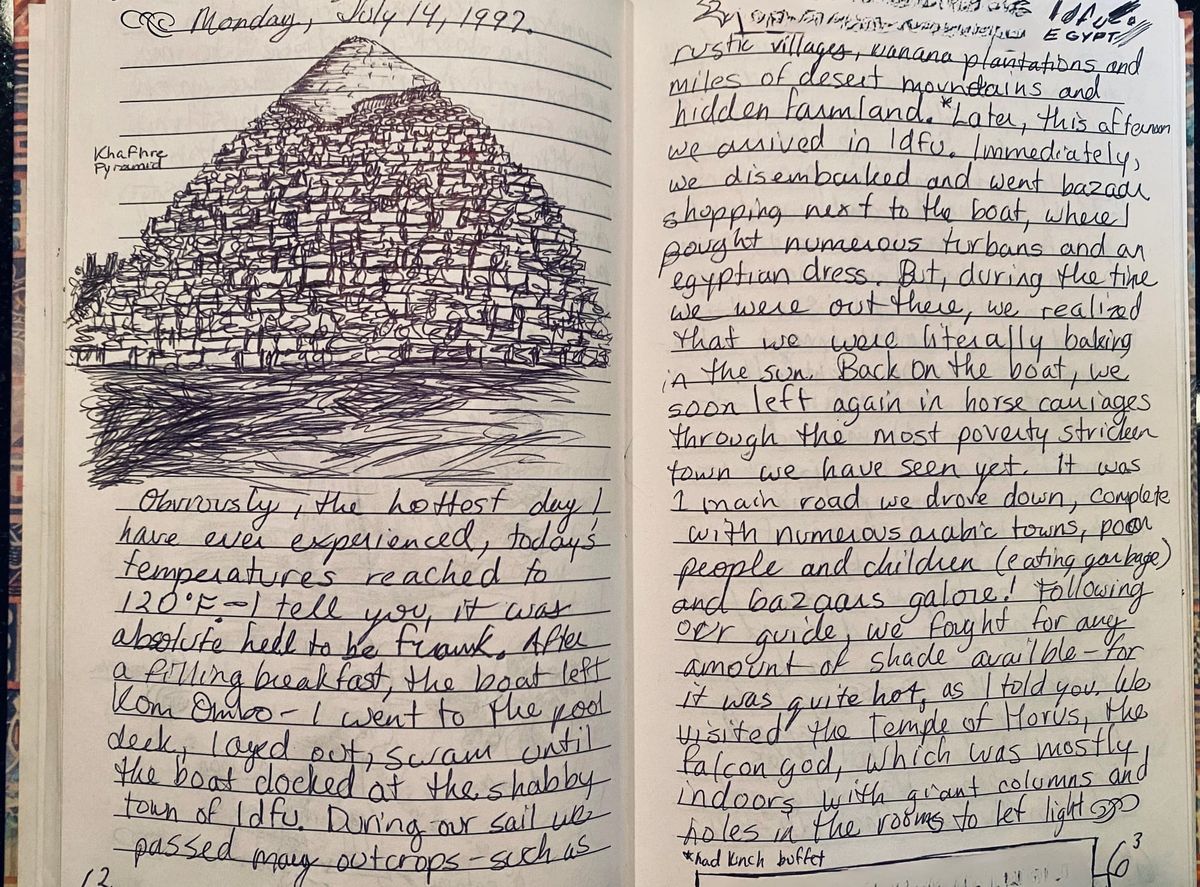 Monday, July 14, 1997.
Khafhre
Pyramid
Obviously, the hottest day I
have ever experienced, today's
temperatures reached to
120°F - I tell you, it was
absolute hell to be frank. After
a filling breakfast, the boat left
Kom Ombo - I went to the pool
deck, layed out, swam until
the boat docked at the shabby
town of Idfu. During our sail we
passed many outcrops - such as
12
Idfu
EGYPT
rustic villages, vanana plantations and
miles of desert mountains and
hidden farmland. *Later, this afternoon
we arrived in Idfu. Immediately,
we disembarked and went bazaar
shopping next to the boat, where I
bought numerous turbans and an
egyptian dress. But, during the time
we were out there, we realized
that we were literally baking
in the sun. Back on the boat, we
soon left again in horse carriages
through the most poverty stricken
town we have seen yet. It was
1 main road we drove down, complete
with numerous arabic towns, poor
people and children (eating garbage)
and bazaars galore! Following
our guide, we fought for any
amount of shade availble - for
it was quite hot, as I told you. We
visited the Temple of Horus, the
falcon god, which was mostly
indoors with giant columns and
holes in the rooms to let light
*had lunch buffet